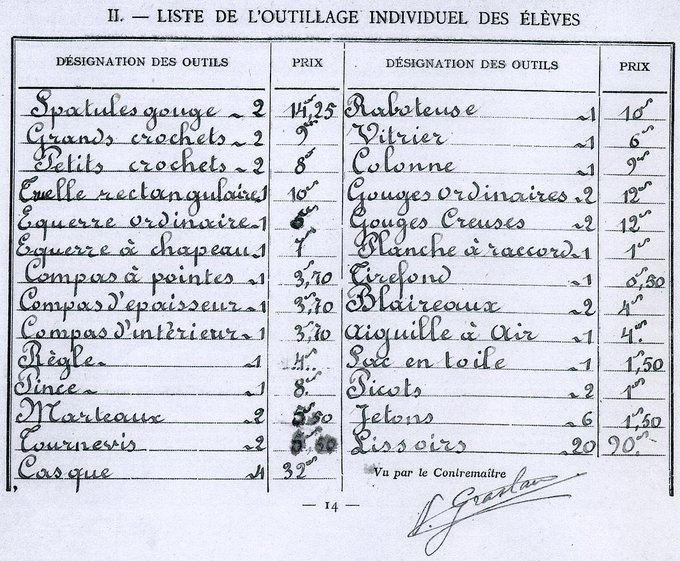 II. — LISTE DE L'OUTILLAGE INDIVIDUEL DES ÉLÈVES
DÉSIGNATION DES OUTILS PRIX DÉSIGNATION DES OUTILS PRIX
Spatules gouge 2 14,25 Raboteuse 1 10
Grands crochets 2 9 Vitrier 1 6
Petits crochets 2 8 Colonne 1 9
Truelle rectangulaire 1 10 Gouges ordinaires 2 12
Equerre ordinaire 1 Gouges Creuses 2 12
Equerre à chapeau 1 7 Planche à raccord 1 1
Compas à pointes 1 3,70 Tirefond 1 0,50
Compas d'epaisseur 1 3,70 Blaireaux 2 4
Compas d'intérieur 1 3,70 Aiguille à Air 1 4
Règle 1 4 Sac en toile 1 1,50
Pince 1 8 Picots 2 1
Marteaux 2 5,50 Jetons 6 1,50
Tournevis 2 Lissoirs 20 90
Casque 4 32 Vu par le Contremaître
— 14 —